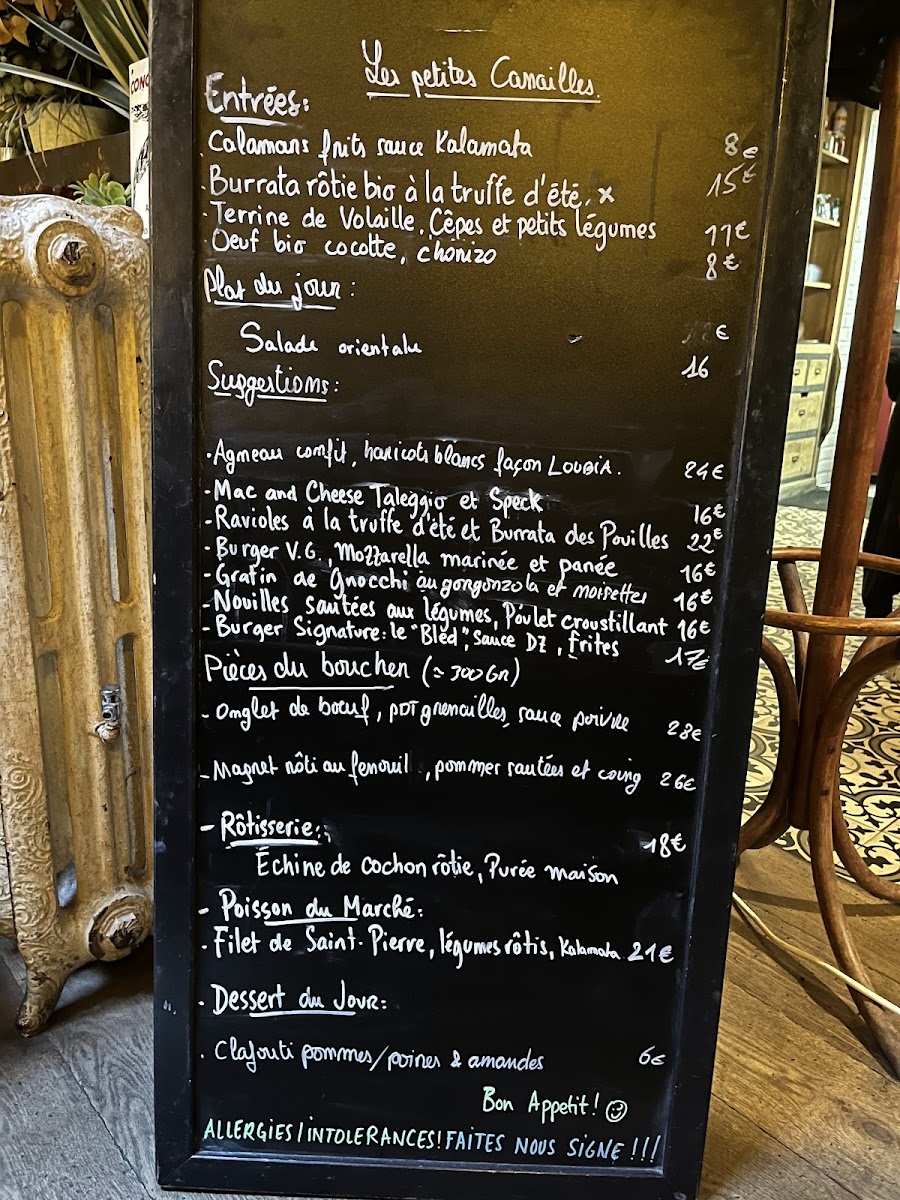 Les petites Canailles.
Entrées:
Calamars frits sauce Kalamata 8€
· Burrata rôtie bio à la truffe d'été, x 15€
· Terrine de Volaille, Cêpes et petits légumes 11€
· Oeuf bio cocotte, chorizo 8€
Plat du jour:
€
Salade orientale 16
Suggestions:
· Agneau confit, haricots blancs façon LOUBIA. 24€
- Mac and Cheese Taleggio et Speck 16€
- Ravioles à la truffe d'été et Burrata des Pouilles 22€
- Burger V.G., Mozzarella marinée et panée 16€
- Gratin de Gnocchi au gorgonzola et noisettes 16€
- Nouilles sautées aux légumes, Poulet croustillant 16€
- Burger Signature: le "Bled", sauce DZ, frites 17€
Pièces du boucher (≃ 300Gr)
- Onglet de boeuf, PDT grenailles, sauce poivre 23€
- Magret rôti au fenouil, pommes sautées et coing 26€
- Rôtisserie: 18€
Échine de cochon rôtie, Purée maison
- Poisson du Marché:
- Filet de Saint-Pierre, légumes rôtis, Kalamata 21€
· Dessert du Jour:
· Clafouti pommes/poires & amandes 6€
Bon Appetit! ☺
ALLERGIES/INTOLERANCES! FAITES NOUS SIGNE!!!